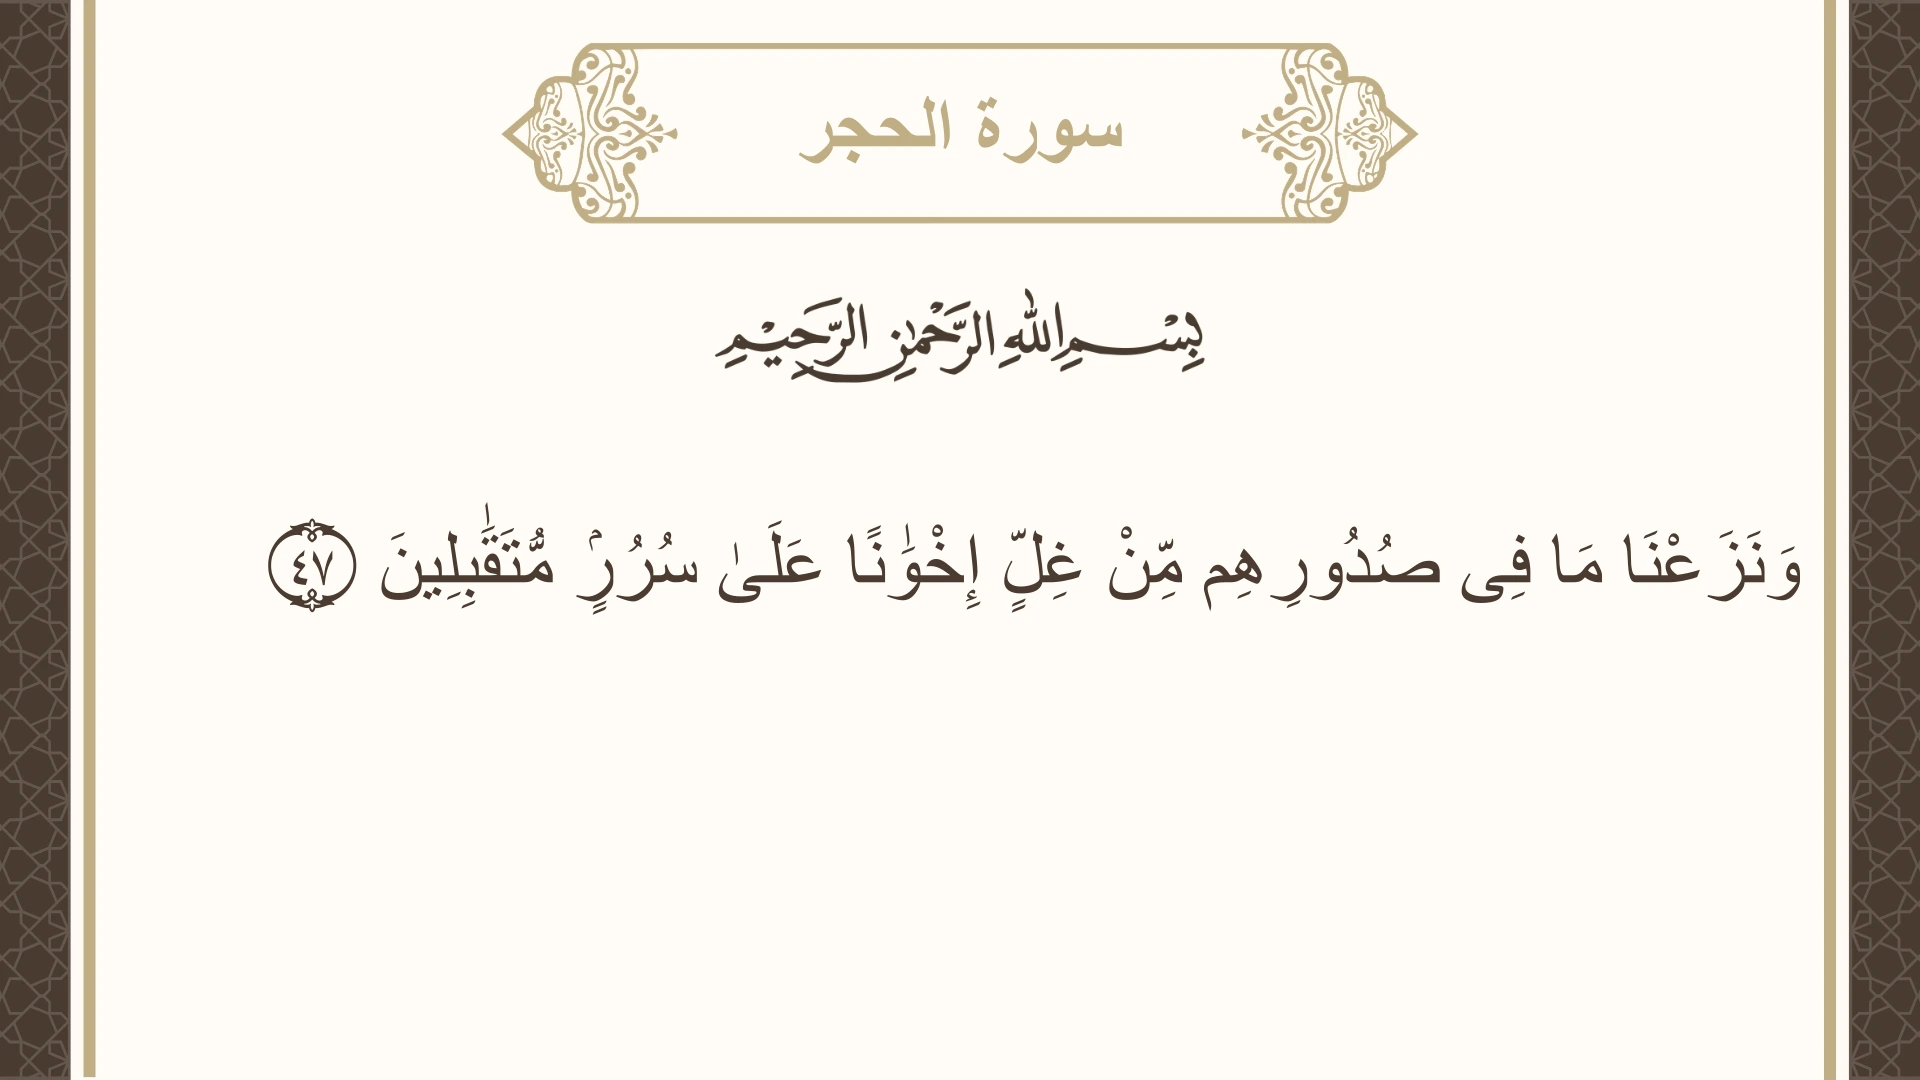 سورة الحجر
بِسْمِ اللهِ الرَّحْمٰنِ الرَّحِيْمِ
وَنَزَعْنَا مَا فِى صُدُورِهِم مِّنْ غِلٍّ إِخْوَٰنًا عَلَىٰ سُرُرٍۢ مُّتَقَٰبِلِينَ ٤٧